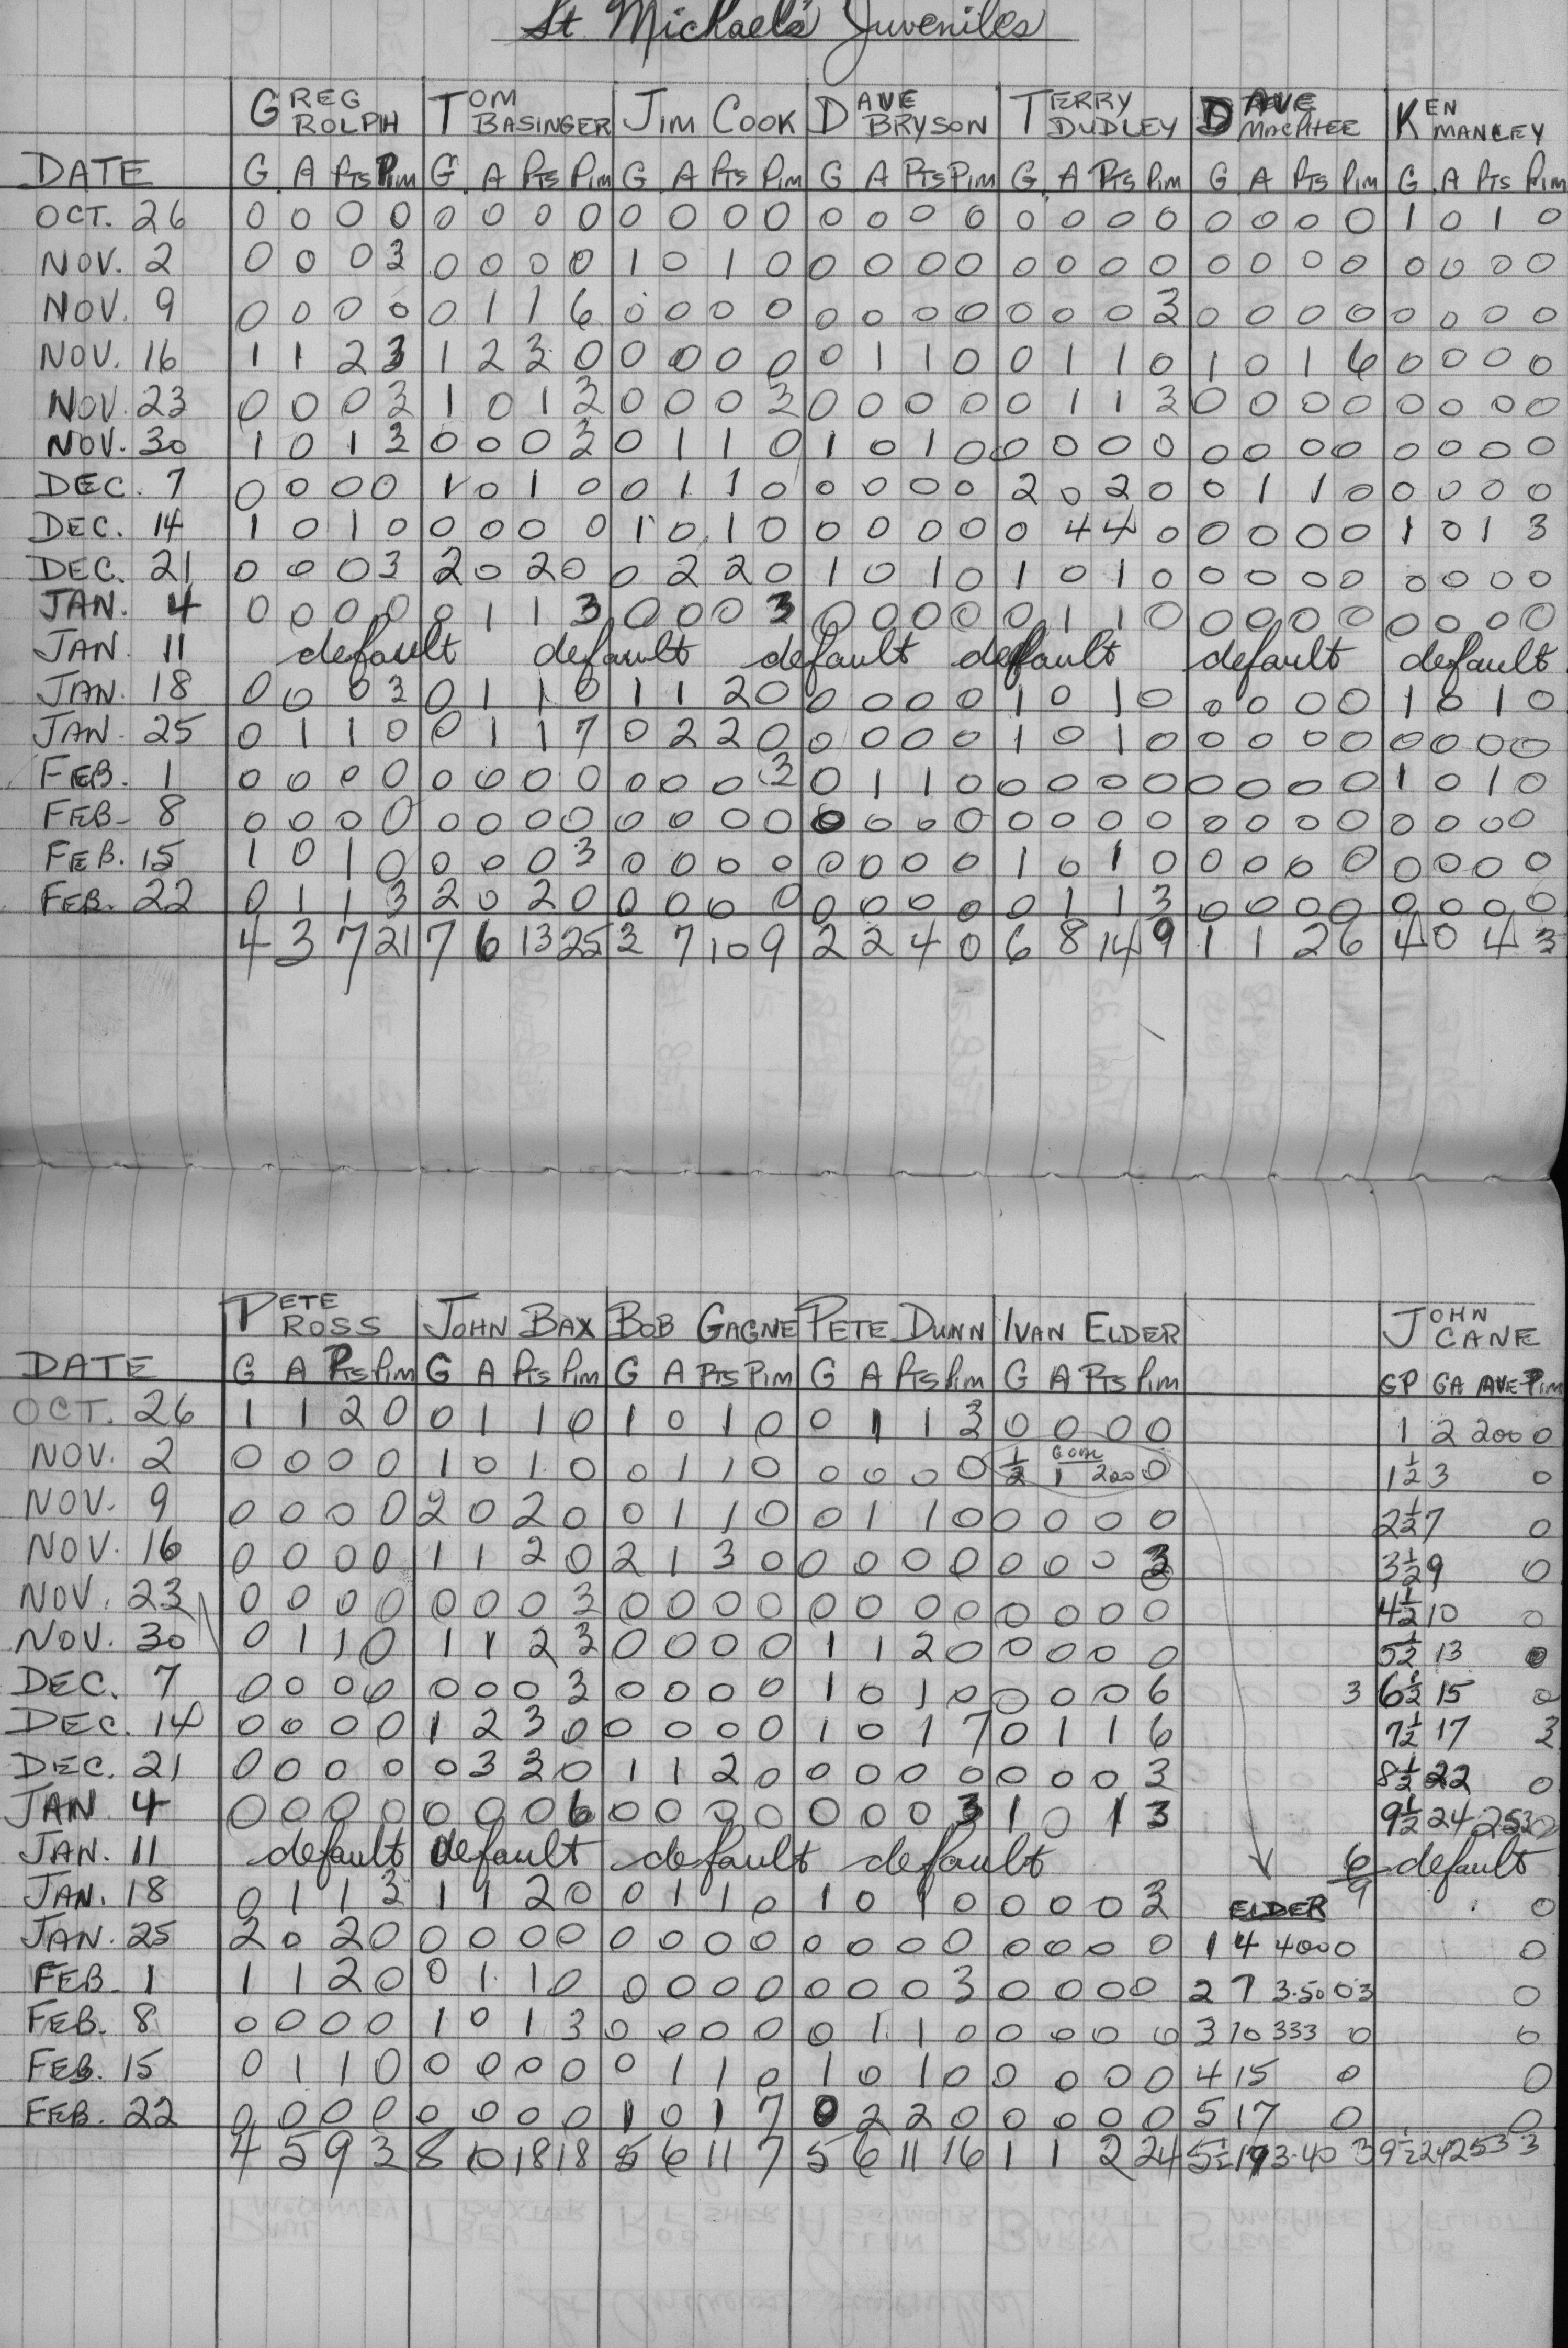 St. Michael's Juveniles
GREG ROLPH TOM BASINGER JIM COOK DAVE BRYSON TERRY DUDLEY DAVE MACPHEE KEN MANLEY
DATE G A Pts Pim G A Pts Pim G A Pts Pim G A Pts Pim G A Pts Pim G A Pts Pim G A Pts Pim
OCT. 26 0 0 0 0 0 0 0 0 0 0 0 0 0 0 0 0 0 0 0 0 0 0 0 0 1 0 1 0
NOV. 2 0 0 0 3 0 0 0 0 1 0 1 0 0 0 0 0 0 0 0 0 0 0 0 0 0 0 0 0
NOV. 9 0 0 0 0 0 1 1 6 0 0 0 0 0 0 0 0 0 0 0 3 0 0 0 0 0 0 0 0
NOV. 16 1 1 2 3 1 2 3 0 0 0 0 0 0 1 1 0 0 1 1 0 1 0 1 6 0 0 0 0
NOV. 23 0 0 0 3 1 0 1 3 0 0 0 3 0 0 0 0 0 1 1 3 0 0 0 0 0 0 0 0
NOV. 30 1 0 1 3 0 0 0 3 0 1 1 0 1 0 1 0 0 0 0 0 0 0 0 0 0 0 0 0
DEC. 7 0 0 0 0 1 0 1 0 0 1 1 0 0 0 0 0 2 0 2 0 0 1 1 0 0 0 0 0
DEC. 14 1 0 1 0 0 0 0 0 1 0 1 0 0 0 0 0 0 4 4 0 0 0 0 0 1 0 1 3
DEC. 21 0 0 0 3 2 0 2 0 0 2 2 0 1 0 1 0 1 0 1 0 0 0 0 0 0 0 0 0
JAN. 4 0 0 0 0 0 1 1 3 0 0 0 3 0 0 0 0 0 1 1 0 0 0 0 0 0 0 0 0
JAN. 11 default default default default default default
JAN. 18 0 0 0 3 0 1 1 0 1 1 2 0 0 0 0 0 1 0 1 0 0 0 0 0 1 0 1 0
JAN. 25 0 1 1 0 0 1 1 7 0 2 2 0 0 0 0 0 1 0 1 0 0 0 0 0 0 0 0 0
FEB. 1 0 0 0 0 0 0 0 0 0 0 0 3 0 1 1 0 0 0 0 0 0 0 0 0 1 0 1 0
FEB. 8 0 0 0 0 0 0 0 0 0 0 0 0 0 0 0 0 0 0 0 0 0 0 0 0 0 0 0 0
FEB. 15 1 0 1 0 0 0 0 3 0 0 0 0 0 0 0 0 1 0 1 0 0 0 0 0 0 0 0 0
FEB. 22 0 1 1 3 2 0 2 0 0 0 0 0 0 0 0 0 0 1 1 3 0 0 0 0 0 0 0 0
4 3 7 21 7 6 13 25 3 7 10 9 2 2 4 0 6 8 14 9 1 1 2 6 4 0 4 3
PETE ROSS JOHN BAX BOB GAGNE PETE DUNN IVAN ELDER JOHN CANE
DATE G A Pts Pim G A Pts Pim G A Pts Pim G A Pts Pim G A Pts Pim GP GA AVE Pim
OCT. 26 1 1 2 0 0 1 1 0 1 0 1 0 0 1 1 3 0 0 0 0 1 2 2.00 0
NOV. 2 0 0 0 0 1 0 1 0 0 1 1 0 0 0 0 0 ½ GOAL 1 2.00 0 1½ 3 0
NOV. 9 0 0 0 0 2 0 2 0 0 1 1 0 0 1 1 0 0 0 0 0 2½ 7 0
NOV. 16 0 0 0 0 1 1 2 0 2 1 3 0 0 0 0 0 0 0 0 3 3½ 9 0
NOV. 23 0 0 0 0 0 0 0 3 0 0 0 0 0 0 0 0 0 0 0 0 4½ 10 0
NOV. 30 0 1 1 0 1 1 2 3 0 0 0 0 1 1 2 0 0 0 0 0 5½ 13 0
DEC. 7 0 0 0 0 0 0 0 3 0 0 0 0 1 0 1 0 0 0 0 6 3 6½ 15 0
DEC. 14 0 0 0 0 1 2 3 0 0 0 0 0 1 0 1 7 0 1 1 6 7½ 17 3
DEC. 21 0 0 0 0 0 3 3 0 1 1 2 0 0 0 0 0 0 0 0 3 8½ 22 0
JAN 4 0 0 0 0 0 0 0 6 0 0 0 0 0 0 0 3 1 0 1 3 9½ 24 2.53 0
JAN. 11 default default default default 6 default
JAN. 18 0 1 1 3 1 1 2 0 0 1 1 0 1 0 1 0 0 0 0 3 ELDER 9 0
JAN. 25 2 0 2 0 0 0 0 0 0 0 0 0 0 0 0 0 0 0 0 0 1 4 4.00 0 0
FEB. 1 1 1 2 0 0 1 1 0 0 0 0 0 0 0 0 3 0 0 0 0 2 7 3.50 03 0
FEB. 8 0 0 0 0 1 0 1 3 0 0 0 0 0 1 1 0 0 0 0 0 3 10 333 0 0
FEB. 15 0 1 1 0 0 0 0 0 0 1 1 0 1 0 1 0 0 0 0 0 4 15 0 0
FEB. 22 0 0 0 0 0 0 0 0 1 0 1 7 0 2 2 0 0 0 0 0 5 17 0 0
4 5 9 3 8 10 18 18 5 6 11 7 5 6 11 16 1 1 2 24 5½ 19 3.40 3 9½ 24 253 3